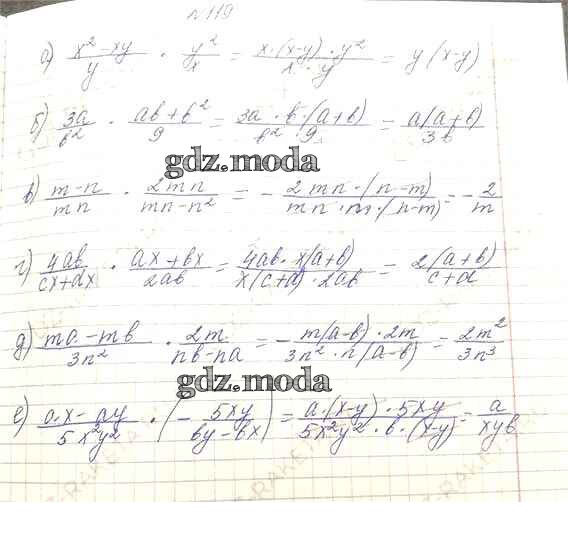 №119
а) (x² - xy)/y · y²/x = (x·(x-y)·y²)/(x·y) = y(x-y)
б) 3a/b² · (ab+b²)/9 = (3a·b·(a+b))/(b²·9) = a(a+b)/3b
gdz.moda
в) (m-n)/mn · 2mn/(mn-n²) = - (2mn·(n-m))/(mn·m·(n-m)) = - 2/m
г) 4ab/(cx+dx) · (ax+bx)/2ab = (4ab·x(a+b))/(x(c+d)·2ab) = 2(a+b)/(c+d)
д) (ma-mb)/3n² · 2m/(nb-na) = - (m(a-b)·2m)/(3n²·n(a-b)) = 2m²/3n³
gdz.moda
е) (ax-ay)/5x²y² · (- 5xy/(by-bx)) = (a·(x-y)·5xy)/(5x²y²·b·(x-y)) = a/xyb